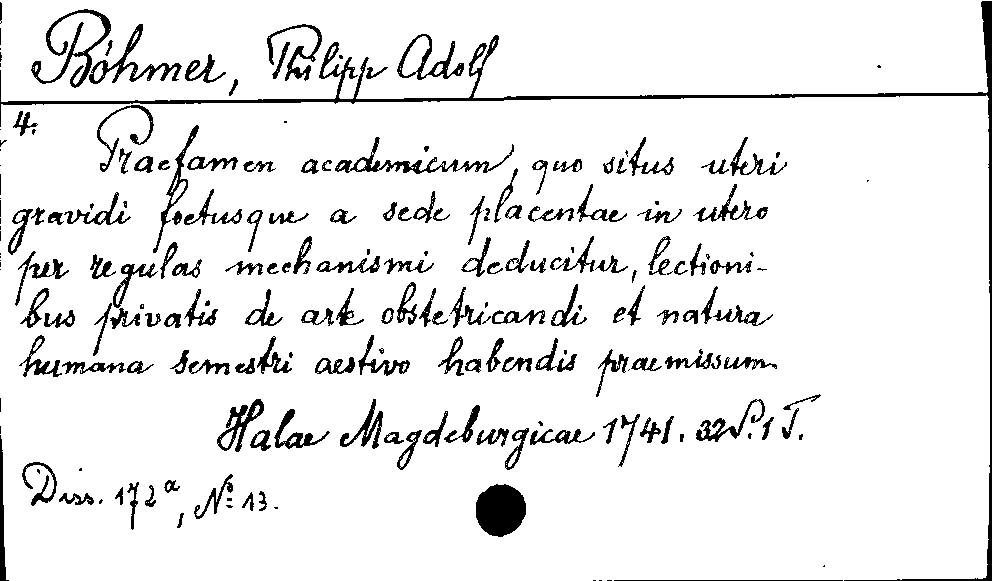 Böhmer, Philipp Adolf
4.
Praefamen academicum, quo situs uteri
gravidi foetusque a sede placentae in utero
per regulas mechanismi deducitur, lectioni-
bus privatis de arte obstetricandi et natura
humana semestri aestivo habendis praemissum.
Halae Magdeburgicae 1741. 32 S. 1 T.
Diss. 172ᵃ, Nº 13.